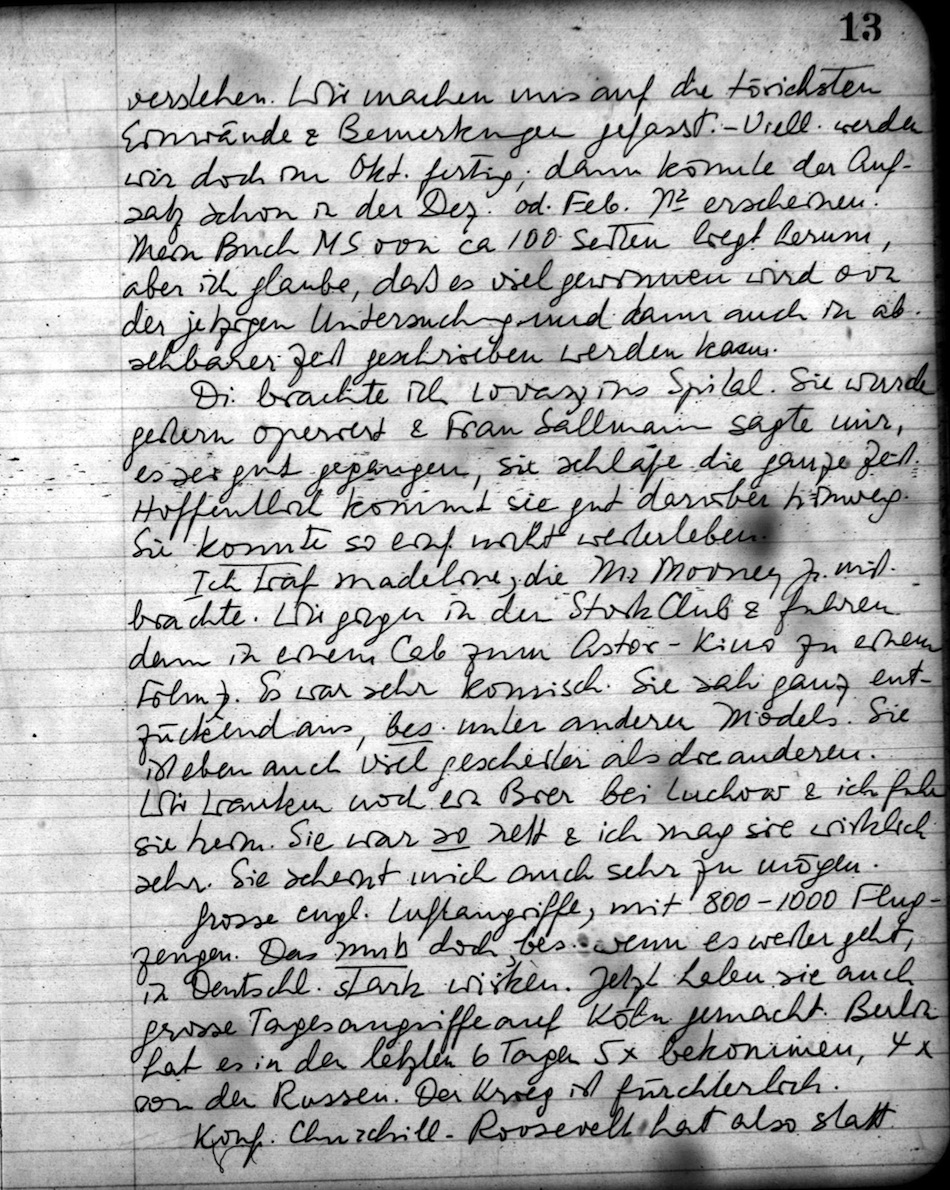 13
verstehen. Wir machen uns auf die törichsten
Einwände & Bemerkungen gefasst. – Viell. werden
wir doch im Okt. fertig; dann könnte der Auf-
satz schon in der Dez. od. Feb. No erscheinen.
Mein Buch MS von ca 100 Seiten liegt herum,
aber ich glaube, daß es viel gewinnen wird von
der jetzigen Untersuchung und dann auch in ab-
sehbarer Zeit geschrieben werden kann.
Di. brachte ich Lovaszy ins Spital. Sie wurde
gestern operiert & Frau Sallmann sagte mir,
es sei gut gegangen, sie schlafe die ganze Zeit.
Hoffentlich kommt sie gut darüber hinweg.
Sie konnte so einf. nicht weiterleben.
Ich traf Madeline, die Mr Mooney jr. mit-
brachte. Wir gingen in den Stork Club & fuhren
dann in einem Cab zum Astor-Kino zu einem
Film. Es war sehr komisch. Sie sah ganz ent-
zückend aus, bes. unter anderen Models. Sie
ist eben auch viel gescheiter als die anderen.
Wir tranken noch ein Bier bei Luchow & ich fuhr
sie heim. Sie war so nett & ich mag sie wirklich
sehr. Sie scheint mich auch sehr zu mögen.
Grosse engl. Luftangriffe, mit 800–1000 Flug-
zeugen. Das muß doch, bes. wenn es weiter geht,
in Deutschl. stark wirken. Jetzt haben sie auch
grosse Tagesangriffe auf Köln gemacht. Berlin
hat es in den letzten 6 Tagen 5x bekommen, 4x
von den Russen. Der Krieg ist fürchterlich.
Konf. Churchill-Roosevelt hat also statt